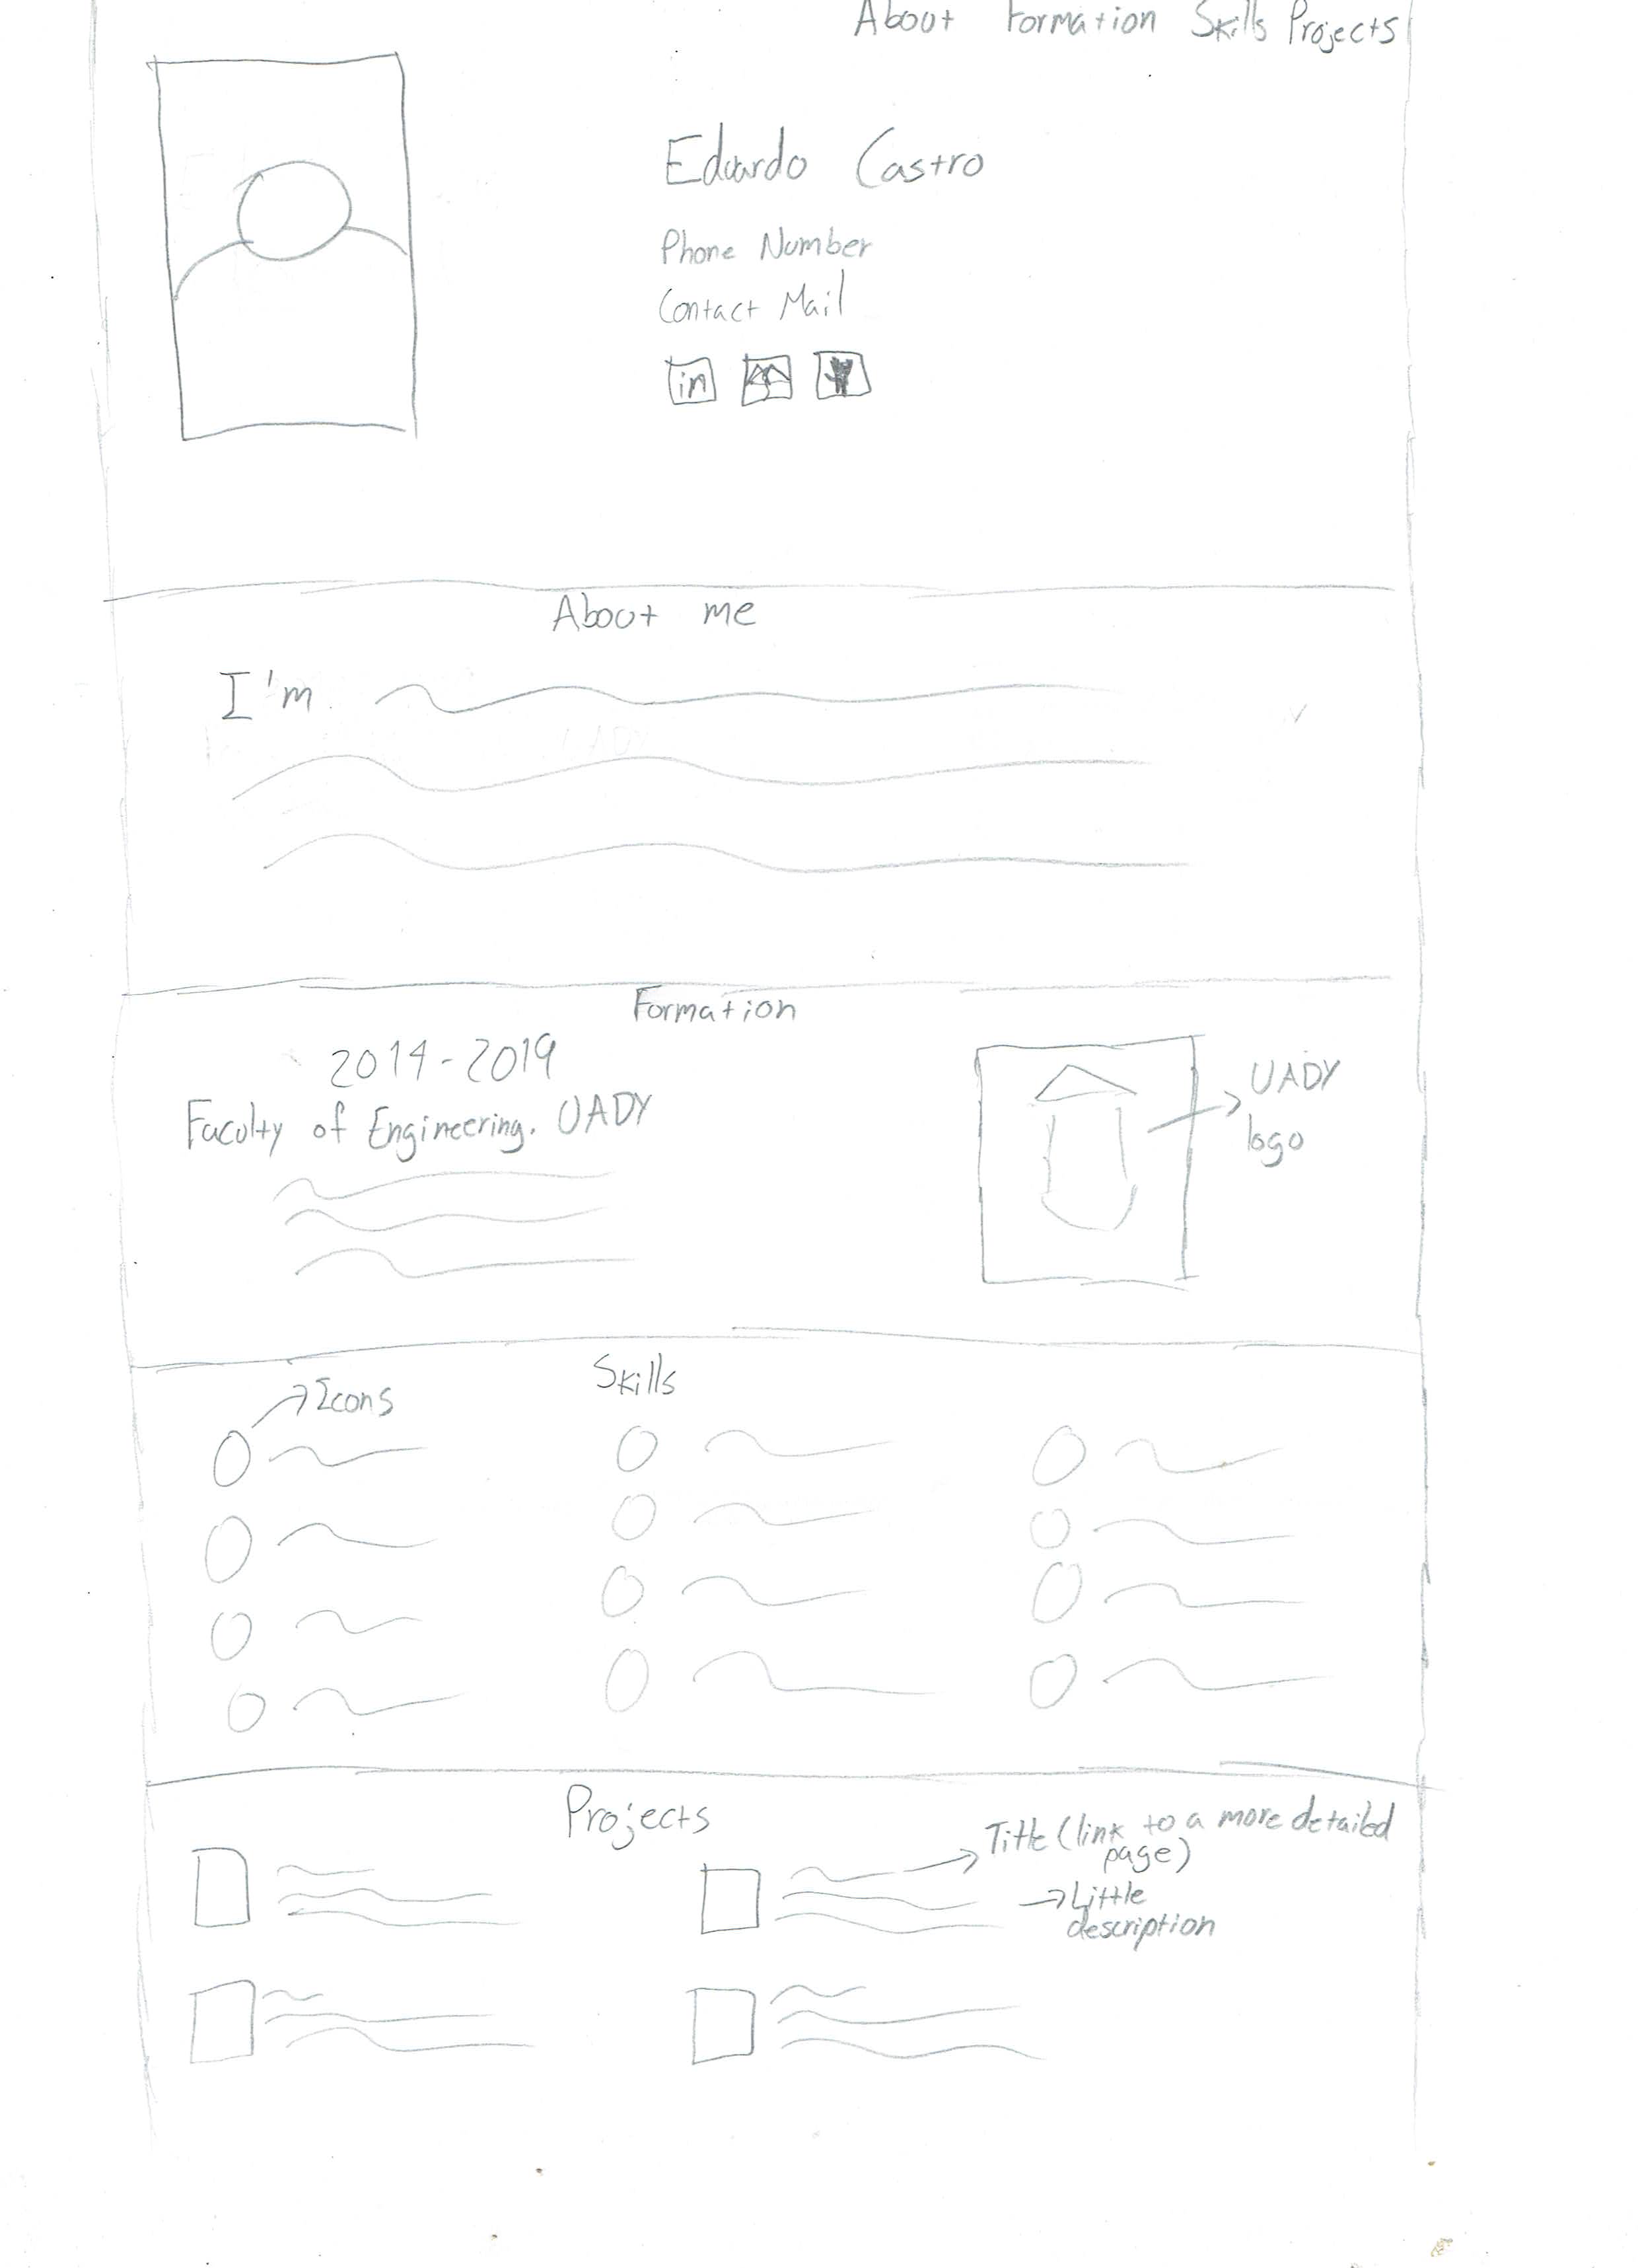 About Formation Skills Projects
Eduardo Castro
Phone Number
Contact Mail
in
About me
I'm
Formation
2014-2019
Faculty of Engineering. UADY
UADY
logo
Skills
Icons
Projects
Title (link to a more detailed
page)
Little
description